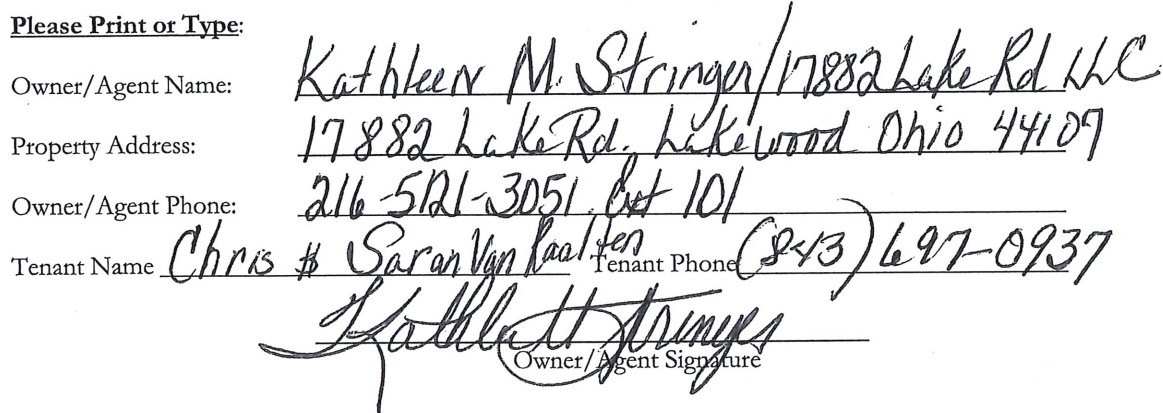 Please Print or Type:
Owner/Agent Name: Kathleen M. Stringer/17882 Lake Rd LLC
Property Address: 17882 Lake Rd. Lakewood Ohio 44107
Owner/Agent Phone: 216-521-3051 Ext 101
Tenant Name Chris & Saran Van Raalten Tenant Phone (843) 697-0937
Kathleen Stringer
Owner/Agent Signature